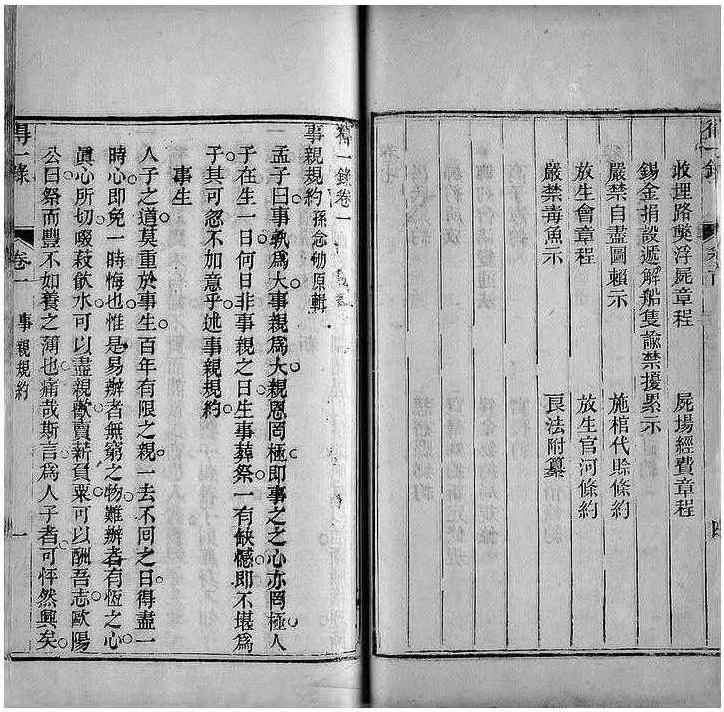 收埋路斃浮屍章程　屍場經費章程
錫金捐設遞解船隻諭禁擾累示
嚴禁自盡圖賴示　施棺代賒條約
放生會章程　放生官河條約
嚴禁毒魚示　良法附纂
得一錄卷一
事親規約 孫念劬原輯
一 孟子曰事孰爲大事親爲大親恩罔極卽事之之心亦罔極人
子在生一日何日非事親之日生事葬祭一有缺憾卽不堪爲
子其可忽不加意乎述事親規約
事生
人子之道莫重於事生百年有限之親一去不回之日得盡一
時心卽免一時悔也惟是易辦者無窮之物難辦者有恆之心
眞心所切啜菽飲水可以盡親歡賣薪負粟可以酬吾志歐陽
公曰祭而豐不如養之薄也痛哉斯言爲人子者可怦然興矣
得一錄 卷一 事親規約 一